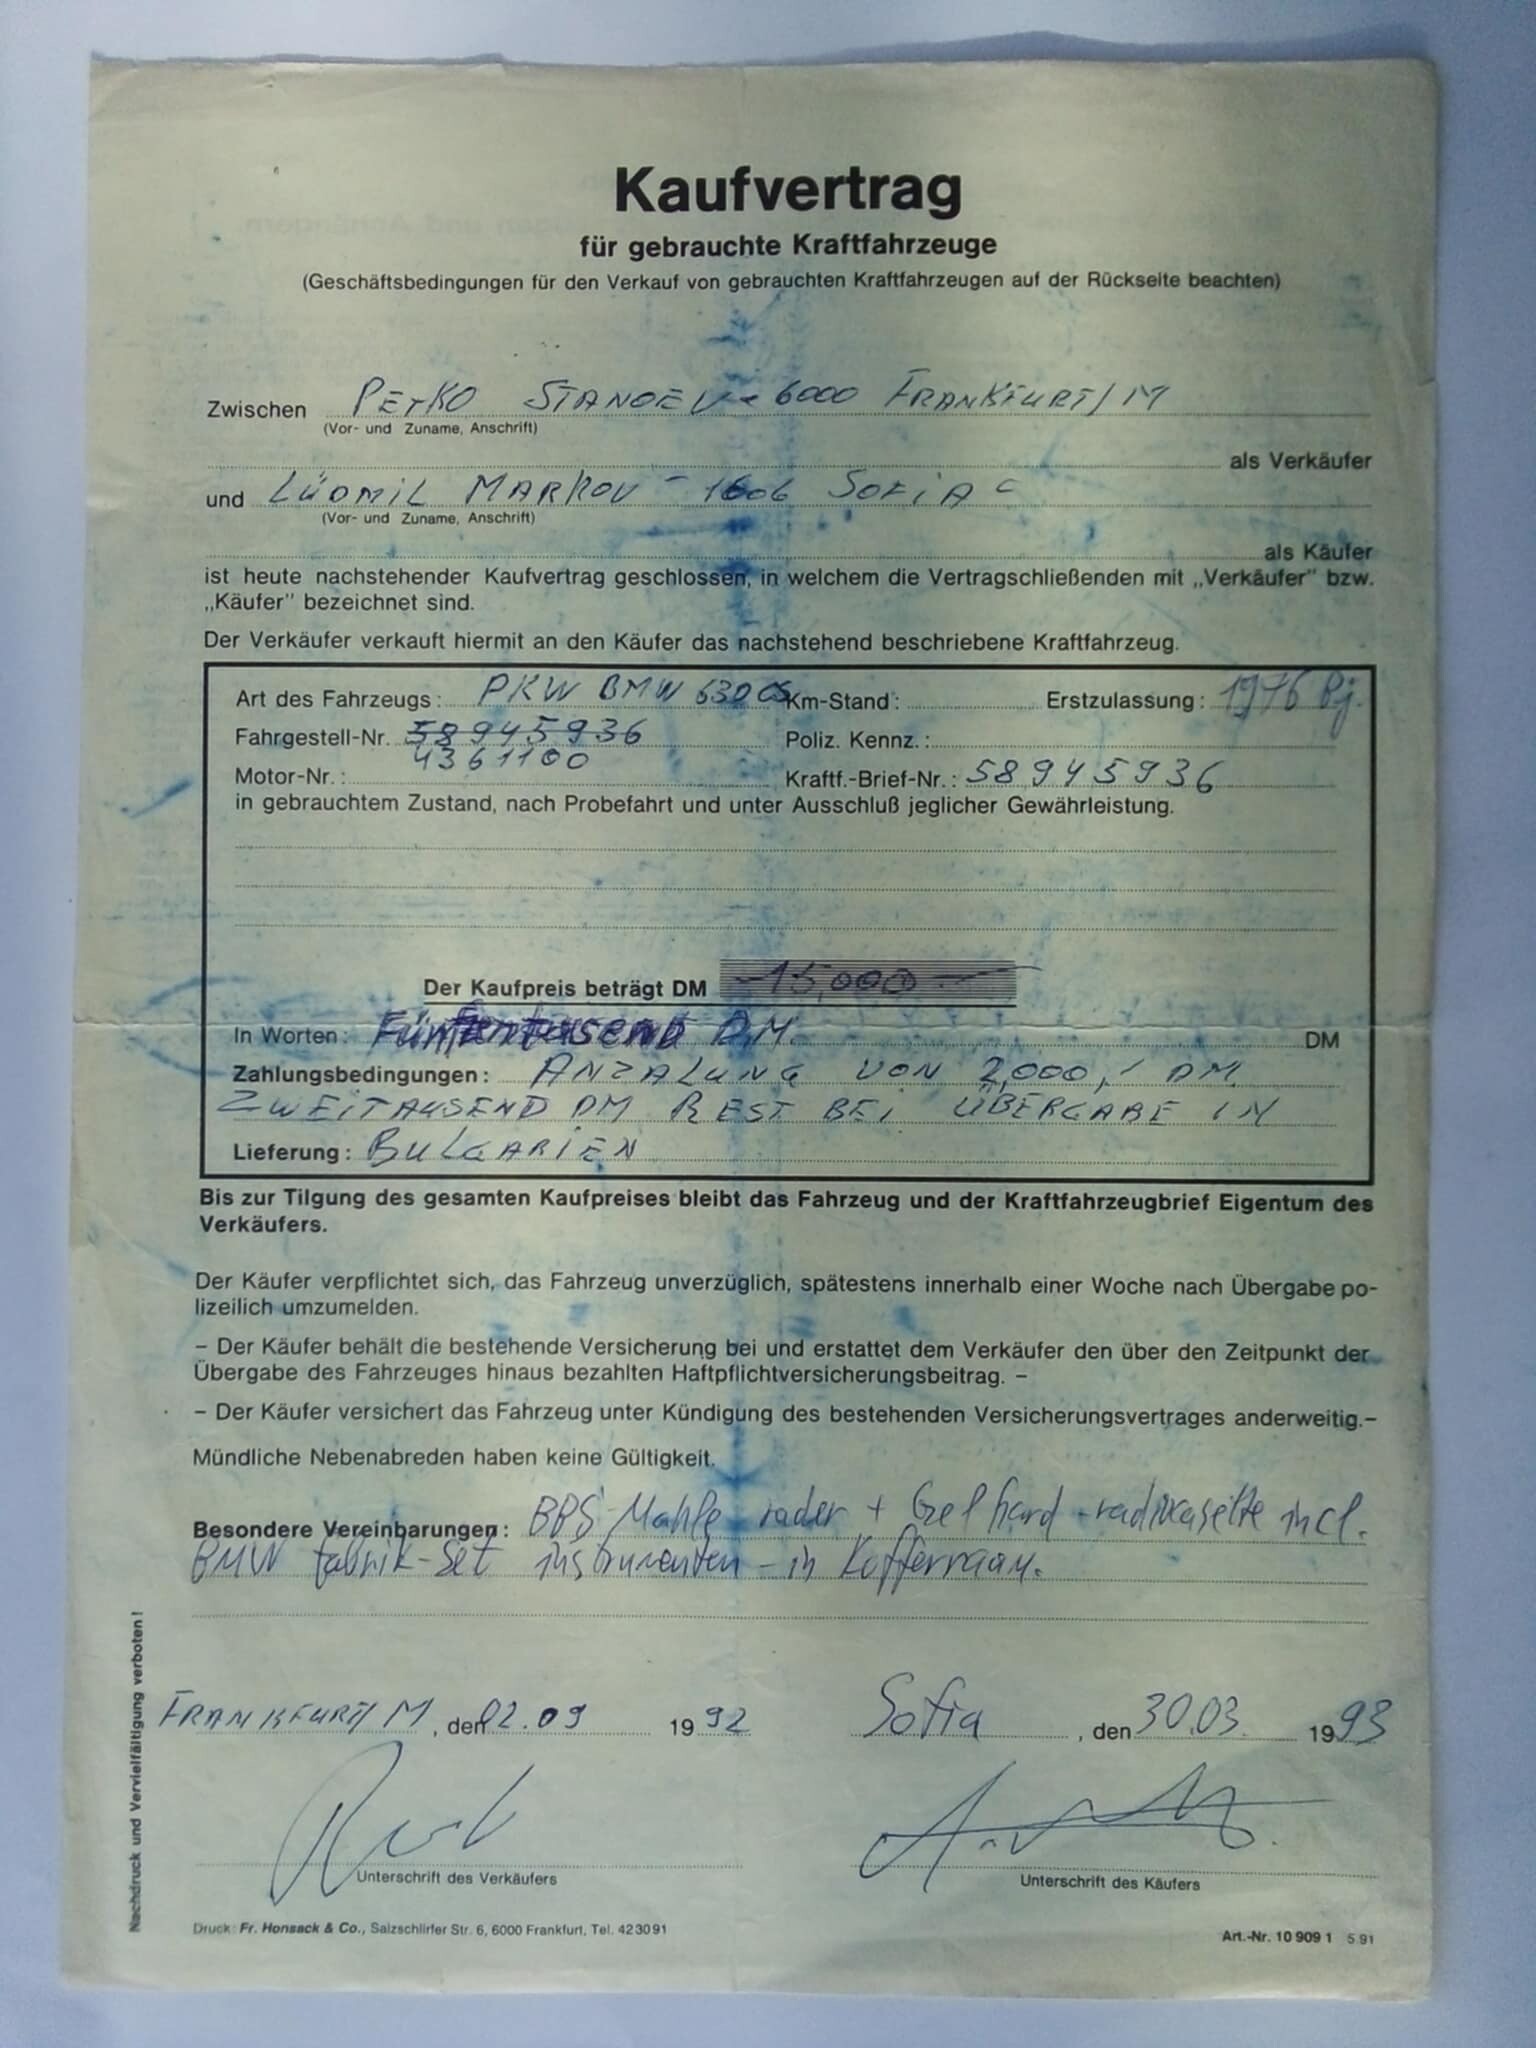 Kaufvertrag
für gebrauchte Kraftfahrzeuge
(Geschäftsbedingungen für den Verkauf von gebrauchten Kraftfahrzeugen auf der Rückseite beachten)
Zwischen PETKO STANOEV - 6000 FRANKFURT/M
(Vor- und Zuname, Anschrift)
als Verkäufer
und LÜDMIL MARKOV - 1606 SOFIA
(Vor- und Zuname, Anschrift)
als Käufer
ist heute nachstehender Kaufvertrag geschlossen, in welchem die Vertragschließenden mit „Verkäufer" bzw.
„Käufer" bezeichnet sind.
Der Verkäufer verkauft hiermit an den Käufer das nachstehend beschriebene Kraftfahrzeug.
Art des Fahrzeugs: PKW BMW 630 CS Km-Stand: Erstzulassung: 1976 Bj.
Fahrgestell-Nr. 58945936 Poliz. Kennz.:
4361100
Motor-Nr.: Kraftf.-Brief-Nr.: 58945936
in gebrauchtem Zustand, nach Probefahrt und unter Ausschluß jeglicher Gewährleistung.
Der Kaufpreis beträgt DM 15,000
In Worten: DM. DM
Zahlungsbedingungen: ANZALUNG VON 2,000,- DM
ZWEITAUSEND DM REST BEI ÜBERGABE IN
Lieferung: BULGARIEN
Bis zur Tilgung des gesamten Kaufpreises bleibt das Fahrzeug und der Kraftfahrzeugbrief Eigentum des
Verkäufers.
Der Käufer verpflichtet sich, das Fahrzeug unverzüglich, spätestens innerhalb einer Woche nach Übergabe po-
lizeilich umzumelden.
– Der Käufer behält die bestehende Versicherung bei und erstattet dem Verkäufer den über den Zeitpunkt der
Übergabe des Fahrzeuges hinaus bezahlten Haftpflichtversicherungsbeitrag. –
– Der Käufer versichert das Fahrzeug unter Kündigung des bestehenden Versicherungsvertrages anderweitig.–
Mündliche Nebenabreden haben keine Gültigkeit.
Besondere Vereinbarungen: BBS Mahle rader + Gelhard - radikasette incl.
BMW fabrik-Set instrumenten - in Kofferraum.
FRANKFURT/M, den 02.09 1992 Sofia, den 30.03. 1993
Unterschrift des Verkäufers Unterschrift des Käufers
Druck: Fr. Honsack & Co., Salzschlirfer Str. 6, 6000 Frankfurt, Tel. 423091 Art.-Nr. 10 909 1 5.91
Nachdruck und Vervielfältigung verboten!